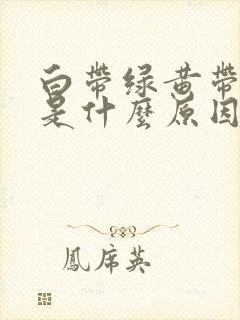 白帶绿黄帶
是什麼原因
鳳席英